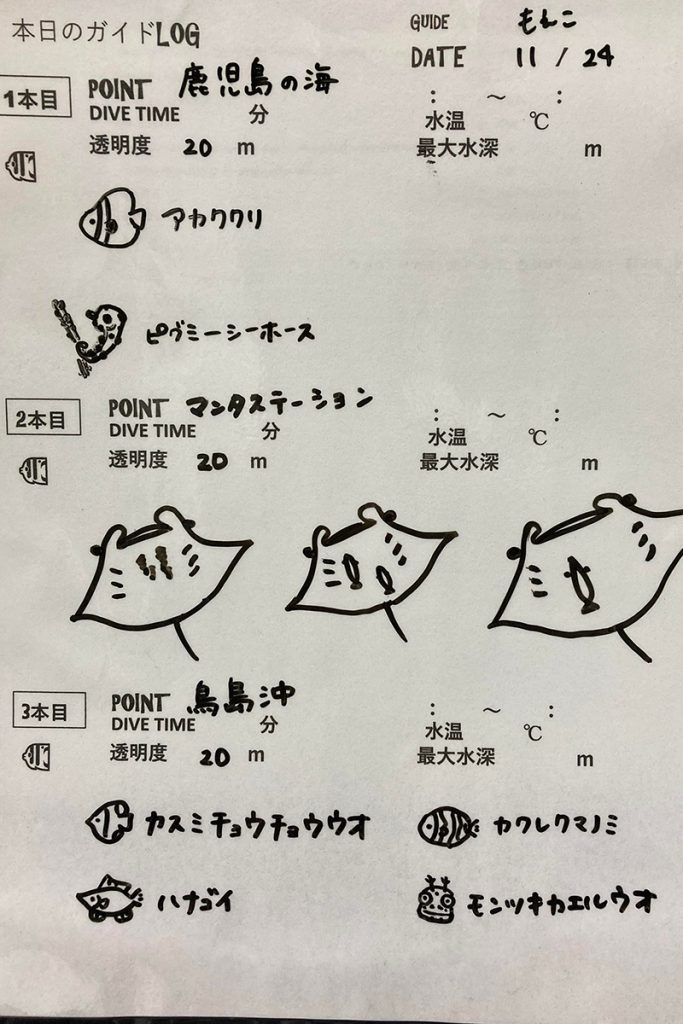 本日のガイドLOG
GUIDE もんこ
DATE 11 / 24
1本目 POINT 鹿児島の海 : ～ :
DIVE TIME 分 水温 ℃
透明度 20 m 最大水深 m
アカククリ
ピグミーシーホース
2本目 POINT マンタステーション : ～ :
DIVE TIME 分 水温 ℃
透明度 20 m 最大水深 m
3本目 POINT 鳥島沖 : ～ :
DIVE TIME 分 水温 ℃
透明度 20 m 最大水深 m
カスミチョウチョウウオ カクレクマノミ
ハナゴイ モンツキカエルウオ